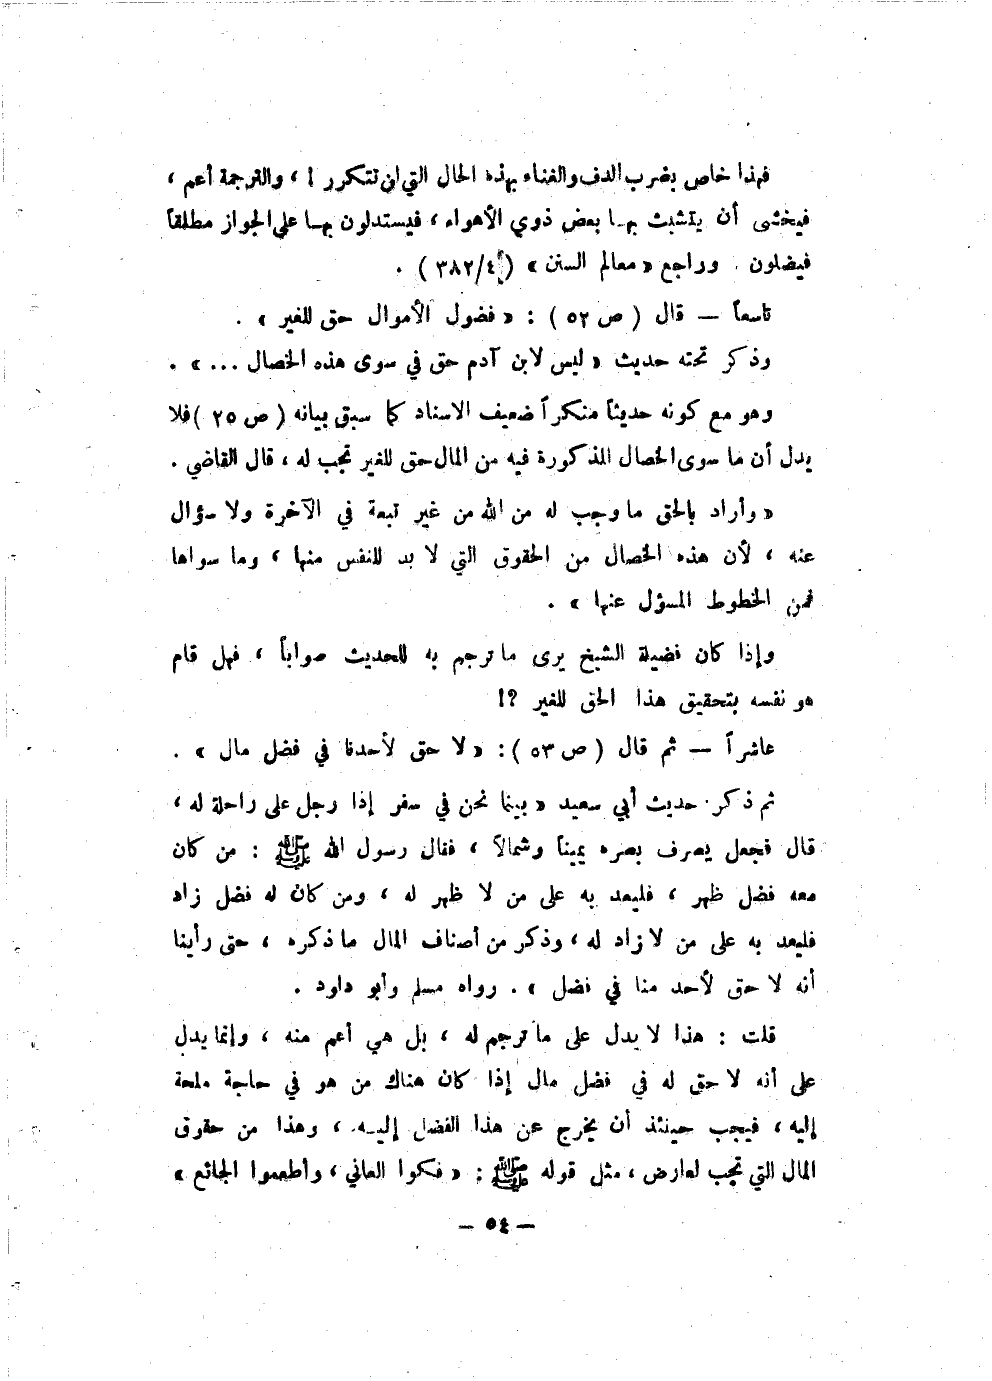 فهذا خاص بضرب الدف والغناء بهذه الحال التي لن تتكرر ! ، والترجمة أعم ،
فيخشى أن يتشبث بها بعض ذوي الأهواء ، فيستدلون بها على الجواز مطلقاً
فيضلون . وراجع « معالم السنن » ( ٤/٣٨٢ ) .
تاسعاً — قال ( ص ٥٢ ) : « فضول الأموال حق للغير » .
وذكر تحته حديث « ليس لابن آدم حق في سوى هذه الخصال ... » .
وهو مع كونه حديثاً منكراً ضعيف الاسناد كما سبق بيانه ( ص ٢٥ ) فلا
يدل أن ما سوى الخصال المذكورة فيه من المال حق للغير تجب له ، قال القاضي .
« وأراد بالحق ما وجب له من الله من غير تبعة في الآخرة ولا سؤال
عنه ، لأن هذه الخصال من الحقوق التي لا بد للنفس منها ، وما سواها
فمن الخطوط المسؤل عنها » .
وإذا كان فضيلة الشيخ يرى ما ترجم به للحديث صواباً ، فهل قام
هو نفسه بتحقيق هذا الحق للغير ؟!
عاشراً — ثم قال ( ص ٥٣ ) : « لا حق لأحدنا في فضل مال » .
ثم ذكر حديث أبي سعيد « بينما نحن في سفر إذا رجل على راحلة له ،
قال فجعل يصرف بصره يميناً وشمالاً ، فقال رسول الله ﷺ : من كان
معه فضل ظهر ، فليعد به على من لا ظهر له ، ومن كان له فضل زاد
فليعد به على من لا زاد له ، وذكر من أصناف المال ما ذكره ، حتى رأينا
أنه لا حق لأحد منا في فضل » . رواه مسلم وأبو داود .
قلت : هذا لا يدل على ما ترجم له ، بل هي أعم منه ، وإنما يدل
على أنه لا حق له في فضل مال إذا كان هناك من هو في حاجة ملحة
إليه ، فيجب حينئذ أن يخرج عن هذا الفضل إليه ، وهذا من حقوق
المال التي تجب لعارض ، مثل قوله ﷺ : « فكوا العاني ، وأطعموا الجائع »
— ٥٤ —